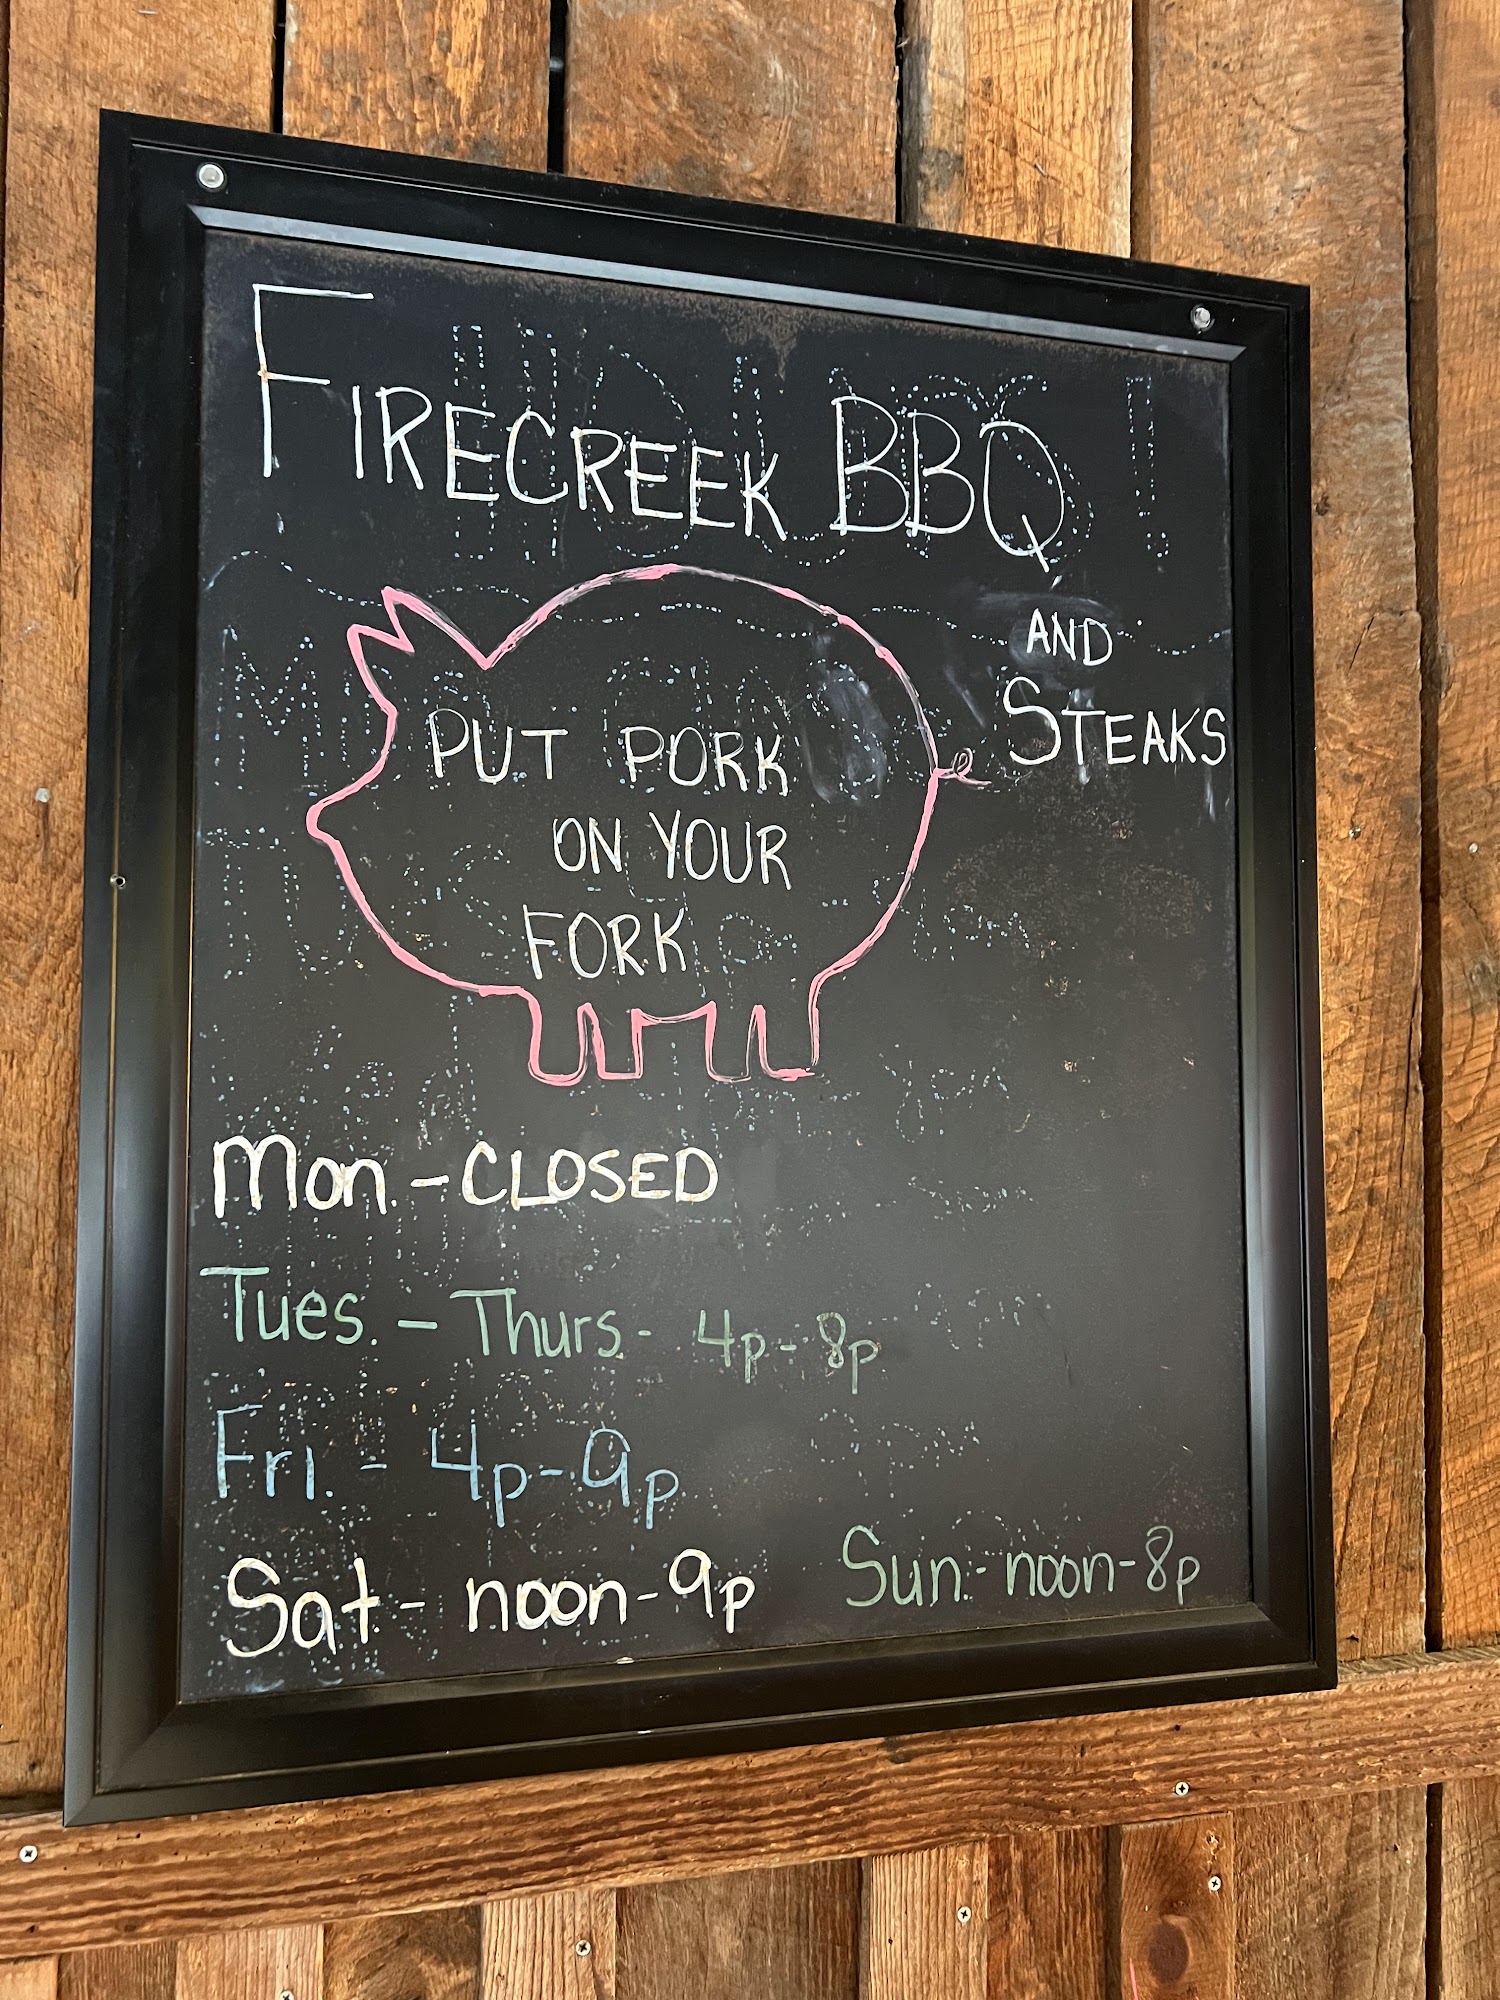 FIRECREEK BBQ
AND
STEAKS
PUT PORK
ON YOUR
FORK
Mon. - CLOSED
Tues. - Thurs - 4p - 8p
Fri. - 4p - 9p
Sat - noon - 9p
Sun. - noon - 8p